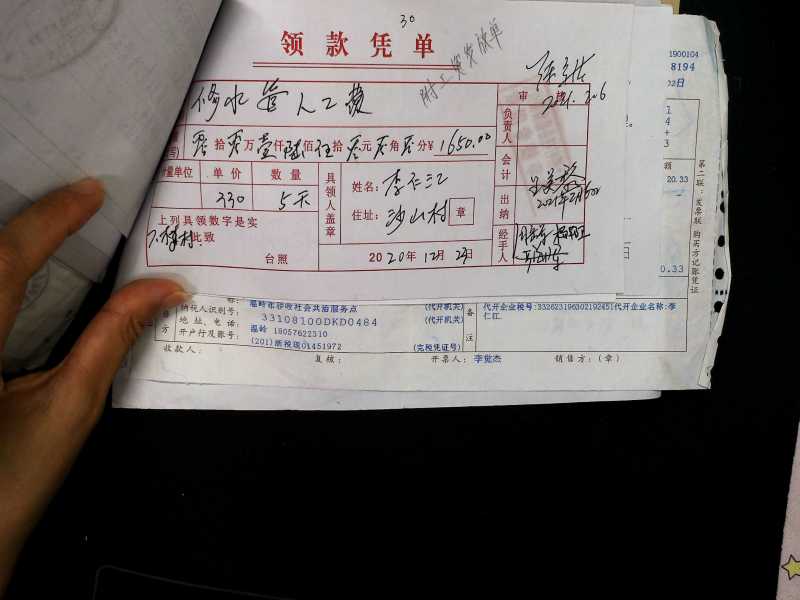 30
领款凭单
附工资发放单
修水管人工费
审核
2021.2.6
负责人
零拾零万壹仟陆佰伍拾零元零角零分¥1650.00
会计
计量单位 单价 数量
330 5天
具领人盖章
姓名：李仁江
住址：沙山村 章
出纳
上列具领数字是实
此致
台照
2020年12月23日
经手人
1900104
8194
02日
20.33
0.33
第二联：发票联 购买方记账凭证
纳税人识别号：
33108100DKD0484
地址、电话：
温岭 18057622310
开户行及账号：
(201)浙税现01451972
(代开机关)
(代开机关)
(完税凭证号)
备注
代开企业税号:332623196302192451代开企业名称:李
仁江.
收款人：
复核：
开票人：李觉杰
销售方：（章）